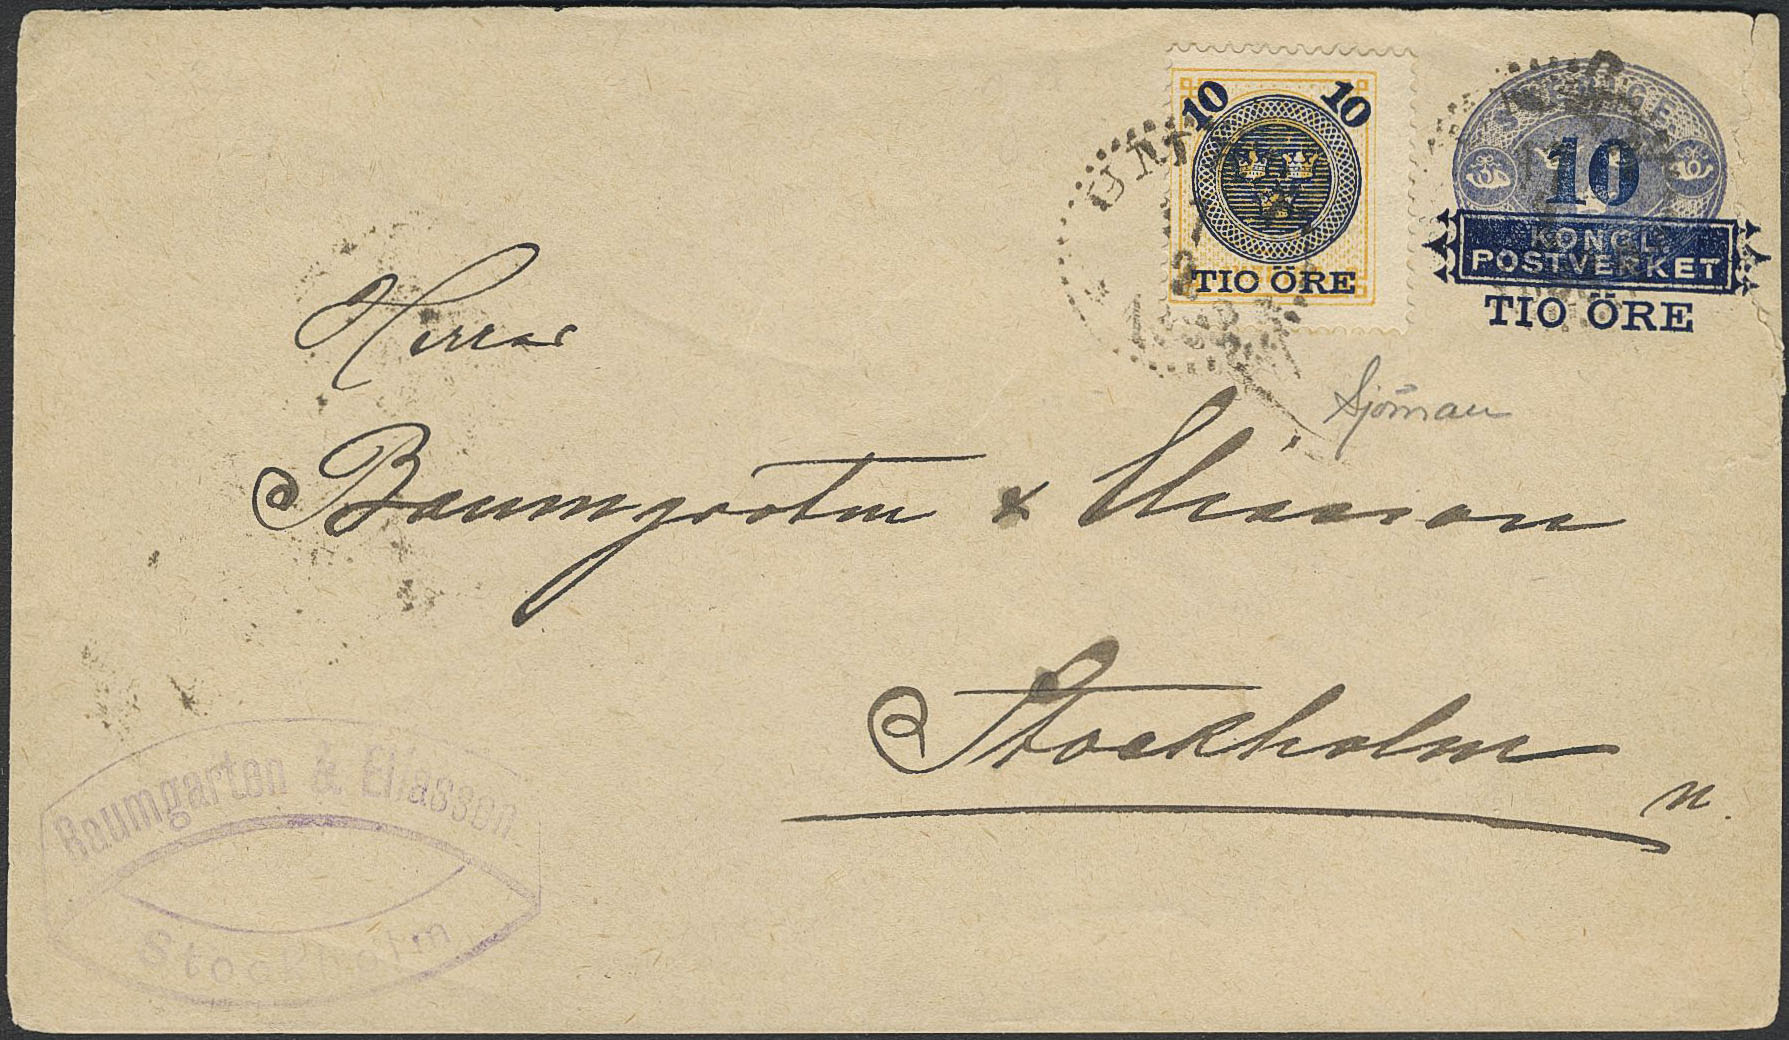 10 10
TIO ÖRE
SVERIGE
10
KONGL.
POSTVERKET
TIO ÖRE
Sjöman
Herrar
Baumgarten & Eliasson
Stockholm
n.
Baumgarten & Eliasson
Stockholm